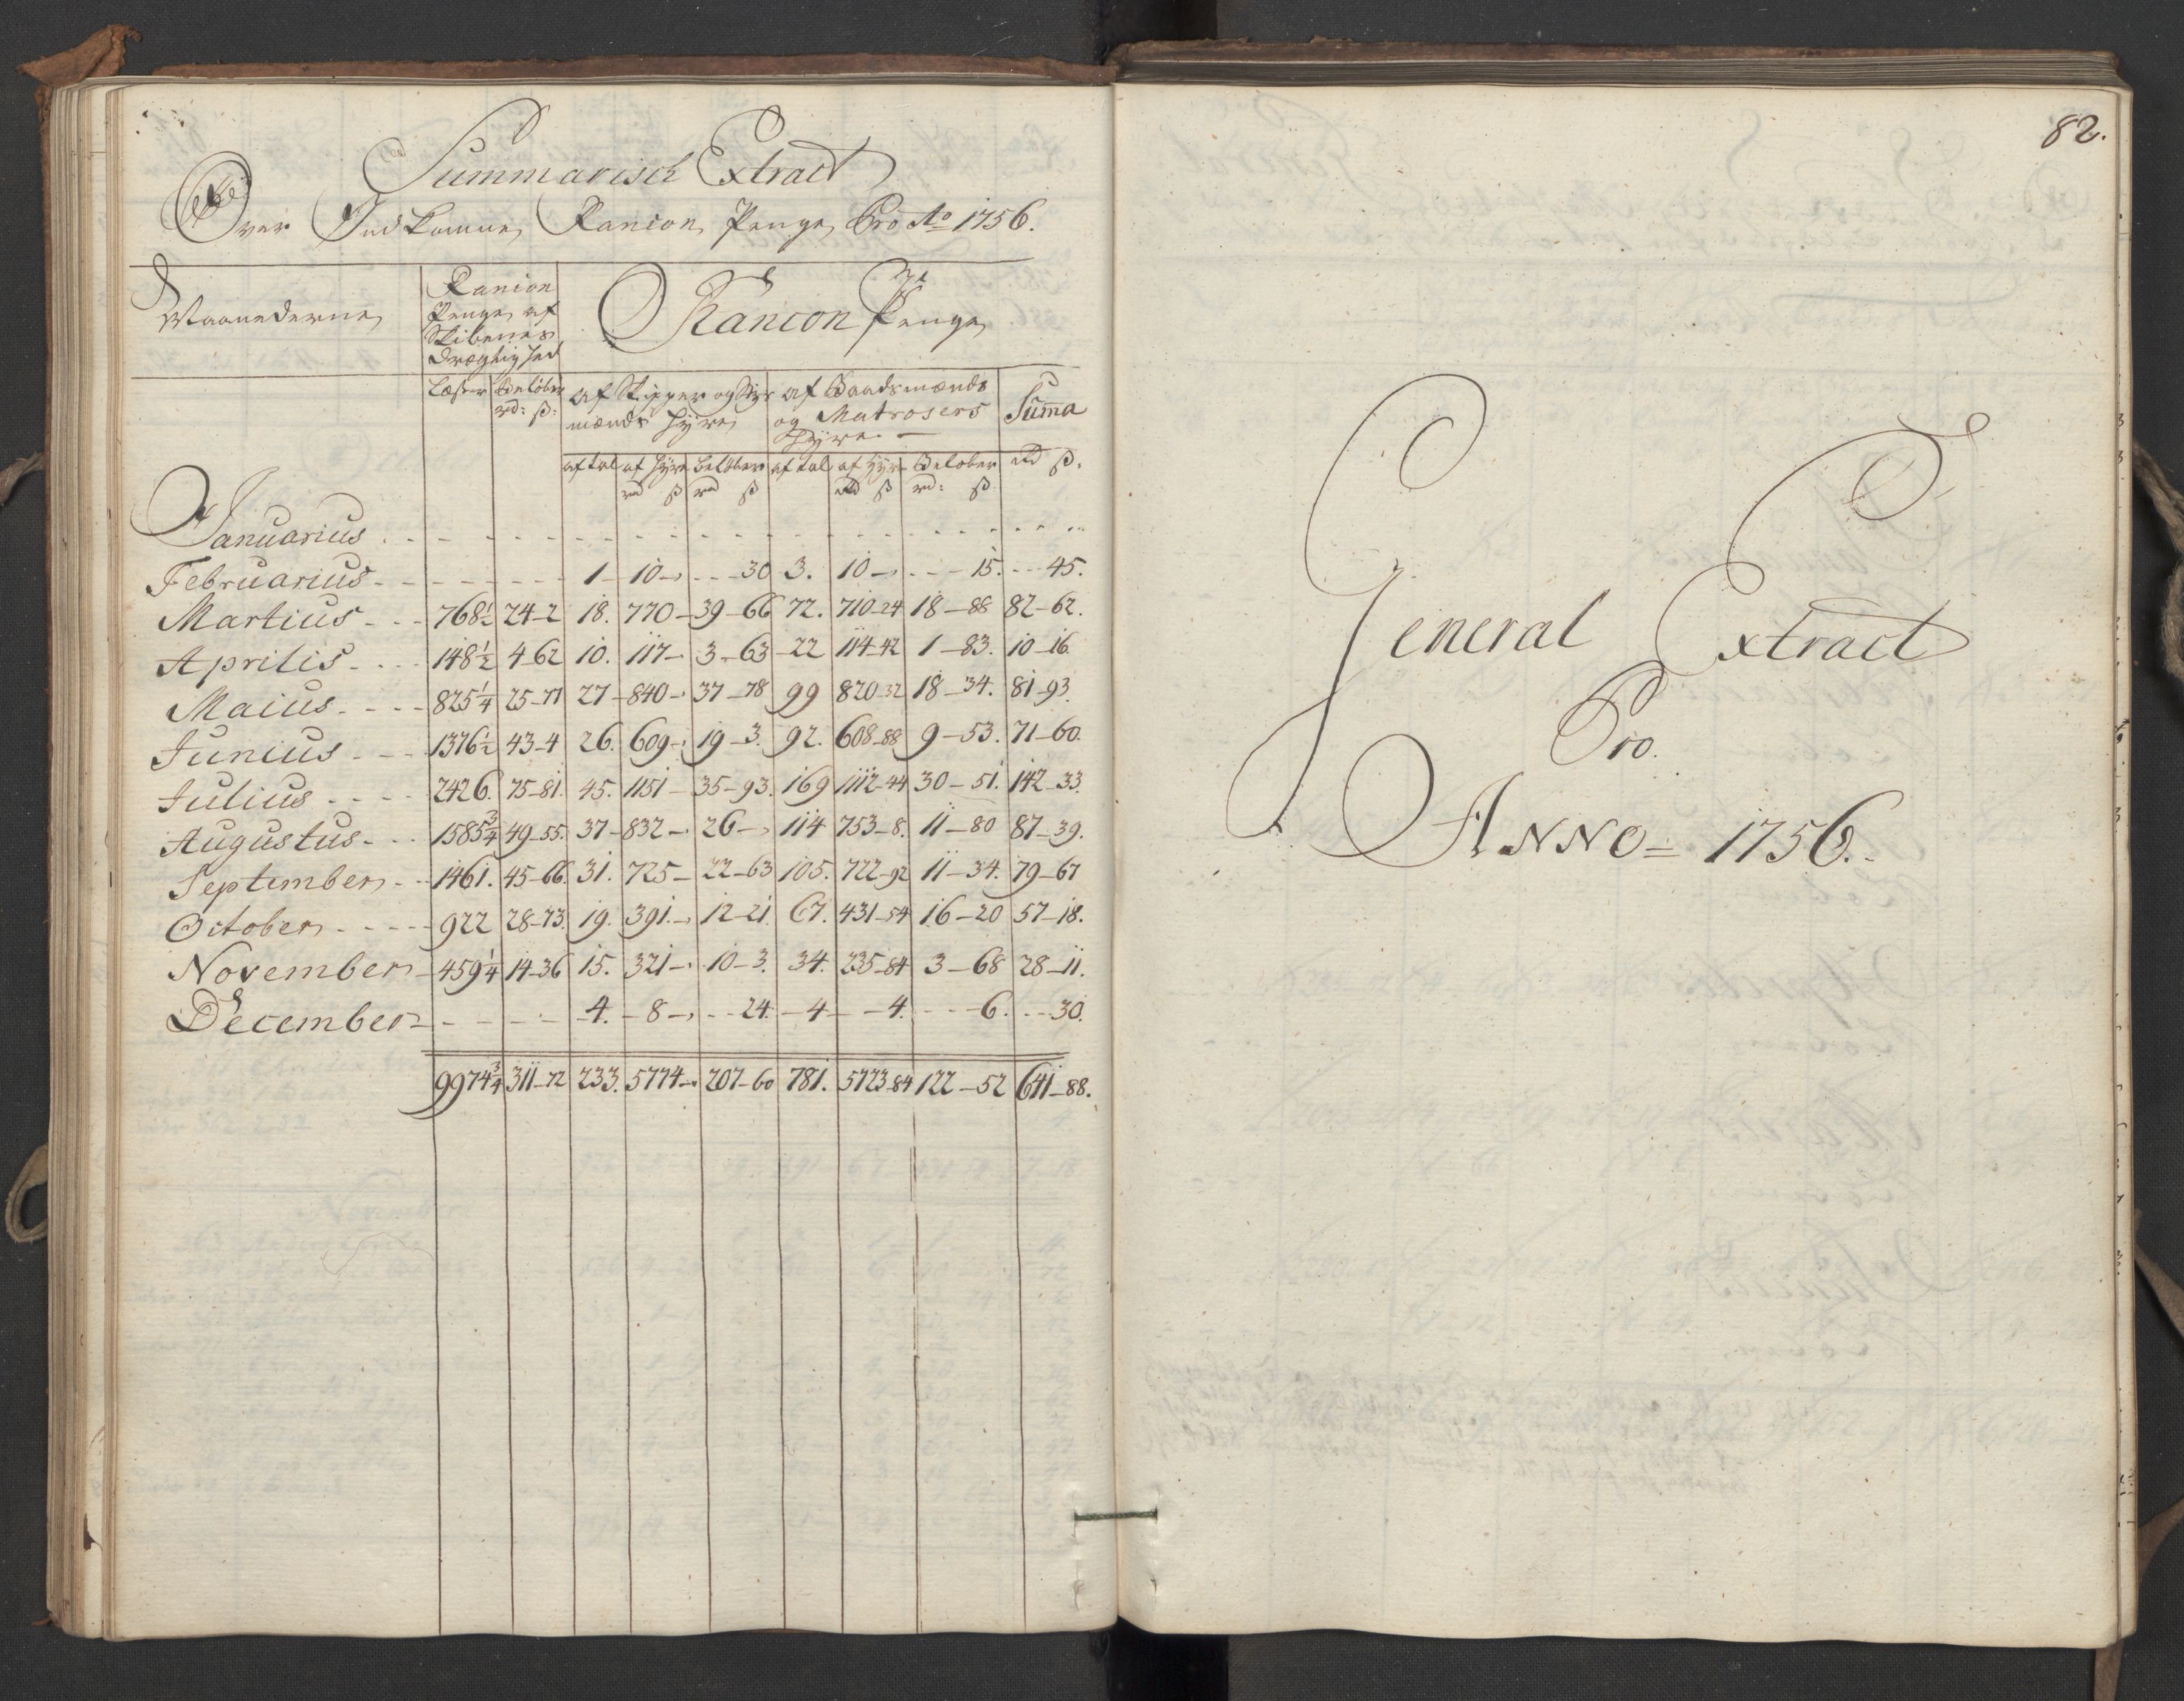 Summarisch Extract
Over Indkomne Rancon Penge Pro Ao 1756.
Maanederne
Rancon
Penge af
Skibenes
Drægtighed
Rancon Penge
Læster
Beløber
rd: ß:
af Skipper og Styr
mænds Hyre
af Baadsmænds
og Matrosers
Hyre. —
Summa
aftal af Hyre beløber aftal af Hyre Beløber rd ß.
rd ß rd ß rd ß rd: ß
Januarius . . - - - - - - - - - - - - - - -
Februarius - - - - - - - 1 - 10 - , - - - 30 3. 10 - , - - - 15. - - - 45.
Martius - - - 768½ 24-2 18. 770 - 39-66 72. 710-24 18-88 82-62.
Aprilis - . . . 148½ 4-62 10. 117 - . 3-63 - 22 114-42 1-83. 10-16.
Maius. - - - 825¼ 25-77 27 - 840 - . 37-78 99 820-32 18-34. 81-93.
Junius - - - 1376½ 43-4 26. 609 - . 19-3. 92. 608-88 9-53. 71-60.
Julius - - - - 2426. 75-81. 45. 1151 - 35-93. 169 1112-44 30-51. 142-33.
Augustus - . . 1585¾ 49-55. 37 - 832 - . 26 - , 114 753-8. 11-80 87-39.
September - - 1461. 45-66. 31. 725 - 22-63 105. 722-92 11-34. 79-67
October - - - - 922 28-73. 19. 391. - , 12-21. 67. 431-54 16-20 57-18.
November - 459¼ 14-36 15. 321 - . 10-3. 34. 235-84 3-68 28-11.
December - - - - - - 4. - 8 - , - - 24. - 4 - - 4. - - - 6. . - - 30.
9974¾ 311-72 233. 5774 - . 207-60 781. 5723-84 122-52 641-88.
82.
General Extract
Pro.
ANNO = 1756. -